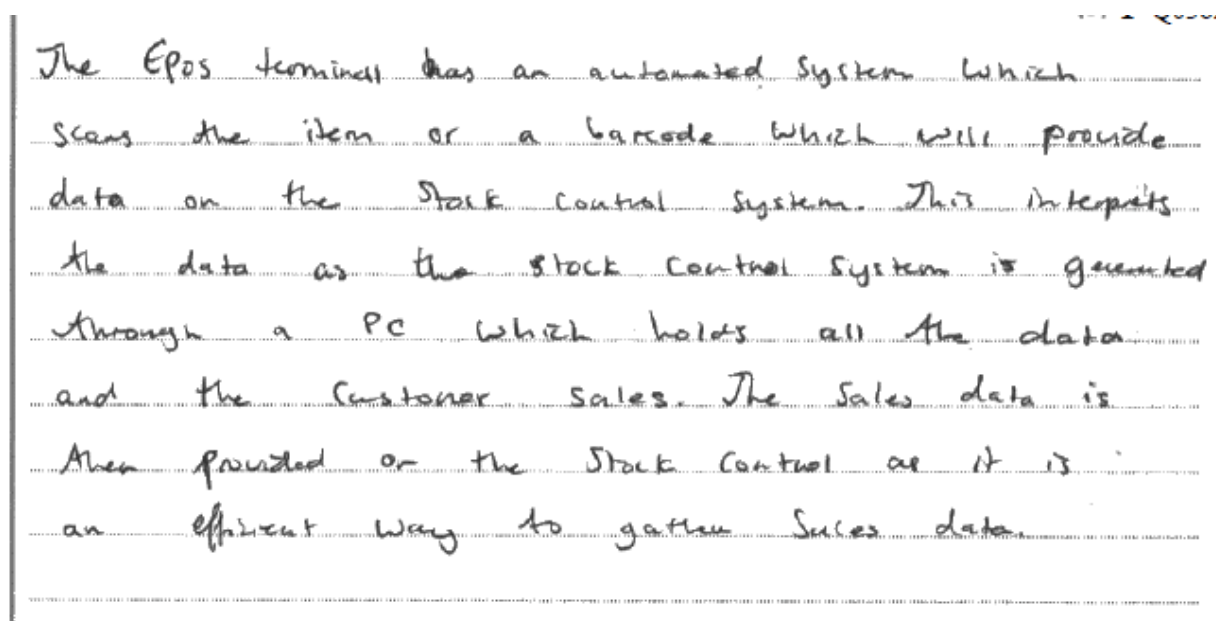 The Epos terminal has an automated system which
scans the item or a barcode which will provide
data on the stock control system. This interprets
the data as the stock control system is generated
through a PC which holds all the data
and the customer sales. The sales data is
then provided on the stock control as it is
an efficient way to gather sales data.